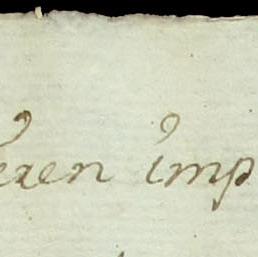 eren imp